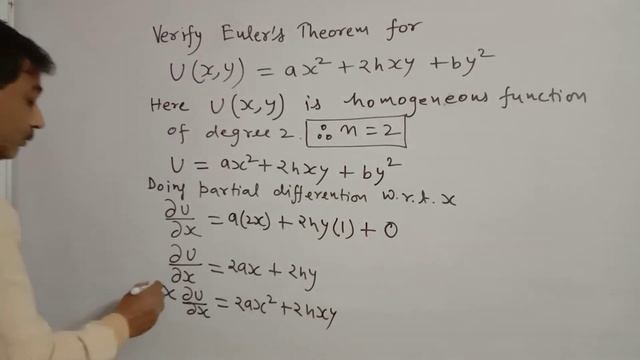 Verify Euler's Theorem for
U(x,y) = ax² + 2hxy + by²
Here U(x,y) is homogeneous function
of degree 2. ∴ n = 2
U = ax² + 2hxy + by²
Doing partial differention w.r.t. x
∂U/∂x = a(2x) + 2hy(1) + 0
∂U/∂x = 2ax + 2hy
x ∂U/∂x = 2ax² + 2hxy